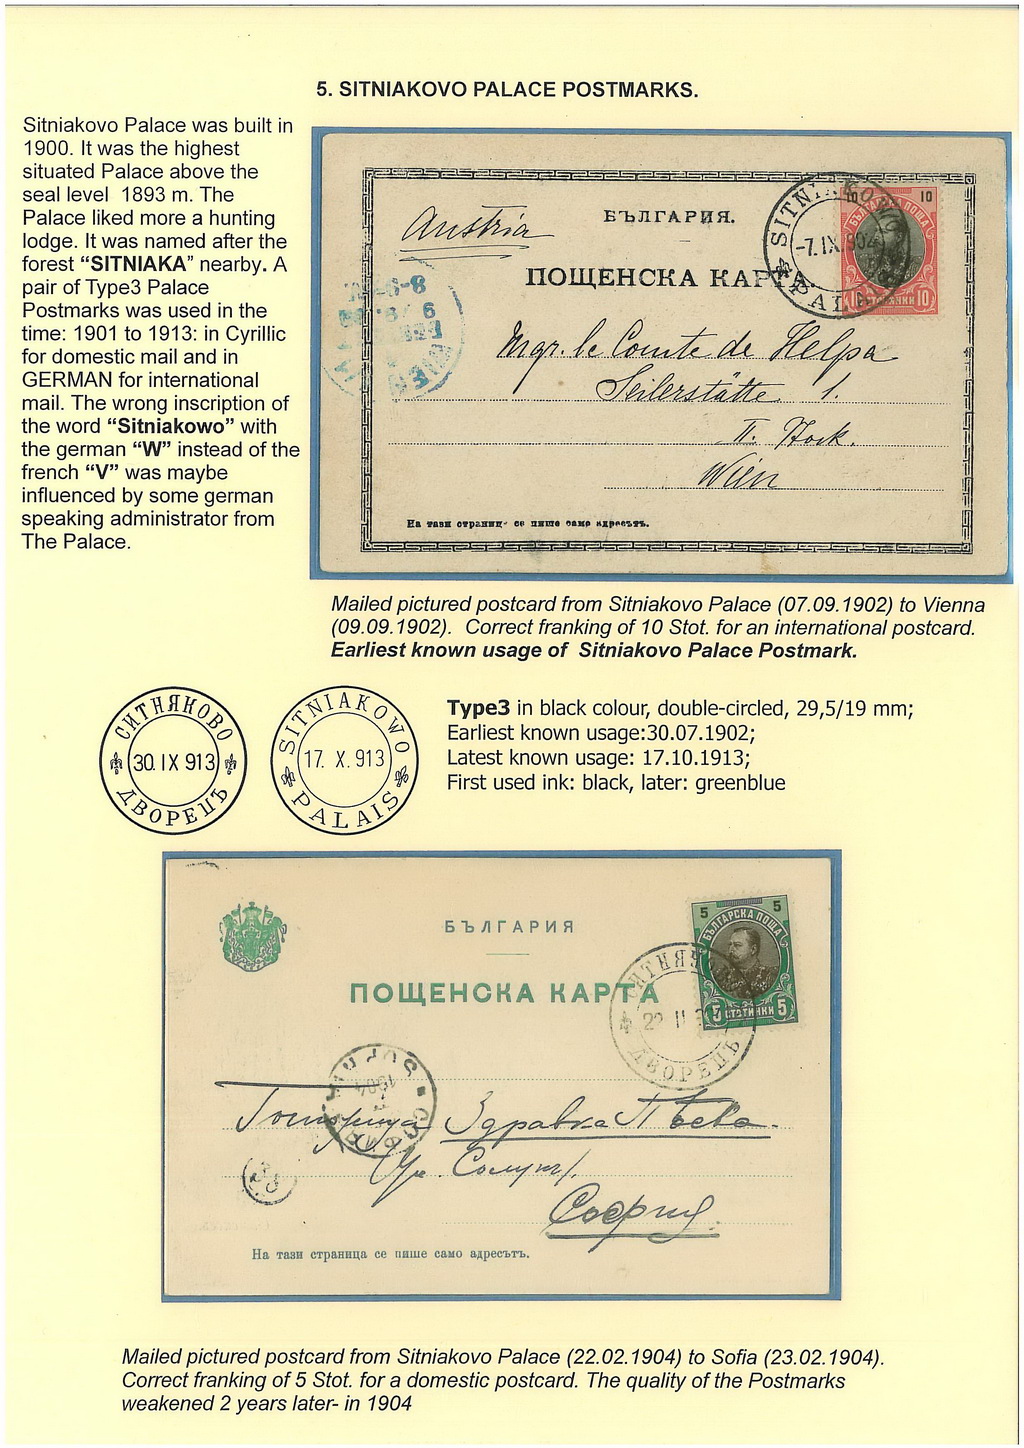 5. SITNIAKOVO PALACE POSTMARKS.
Sitniakovo Palace was built in
1900. It was the highest
situated Palace above the
seal level 1893 m. The
Palace liked more a hunting
lodge. It was named after the
forest “SITNIAKA” nearby. A
pair of Type3 Palace
Postmarks was used in the
time: 1901 to 1913: in Cyrillic
for domestic mail and in
GERMAN for international
mail. The wrong inscription of
the word “Sitniakowo” with
the german “W” instead of the
french “V” was maybe
influenced by some german
speaking administrator from
The Palace.
Austria
БЪЛГАРИЯ.
ПОЩЕНСКА КАРТА.
SITNIAKOWO
-7.IX.902
PALAIS
10 10
БЪЛГАРСКА ПОЩА
10 СТОТИНКИ 10
Mgr. le Comte de
Seilerstätte 1.
II. Stock.
Wien
На тази страница се пише само адресътъ.
Mailed pictured postcard from Sitniakovo Palace (07.09.1902) to Vienna
(09.09.1902). Correct franking of 10 Stot. for an international postcard.
Earliest known usage of Sitniakovo Palace Postmark.
СИТНЯКОВО
30. IX 913
ДВОРЕЦЪ
SITNIAKOWO
17. X. 913
PALAIS
Type3 in black colour, double-circled, 29,5/19 mm;
Earliest known usage:30.07.1902;
Latest known usage: 17.10.1913;
First used ink: black, later: greenblue
БЪЛГАРИЯ
ПОЩЕНСКА КАРТА
5 5
БЪЛГАРСКА ПОЩА
5 СТОТИНКИ 5
СИТНЯКОВО
22 II
ДВОРЕЦЪ
SOFIA
1904
СОФИЯ
Госпожица Здравка Пѣева.
Ул.
София.
На тази страница се пише само адресътъ.
Mailed pictured postcard from Sitniakovo Palace (22.02.1904) to Sofia (23.02.1904).
Correct franking of 5 Stot. for a domestic postcard. The quality of the Postmarks
weakened 2 years later- in 1904